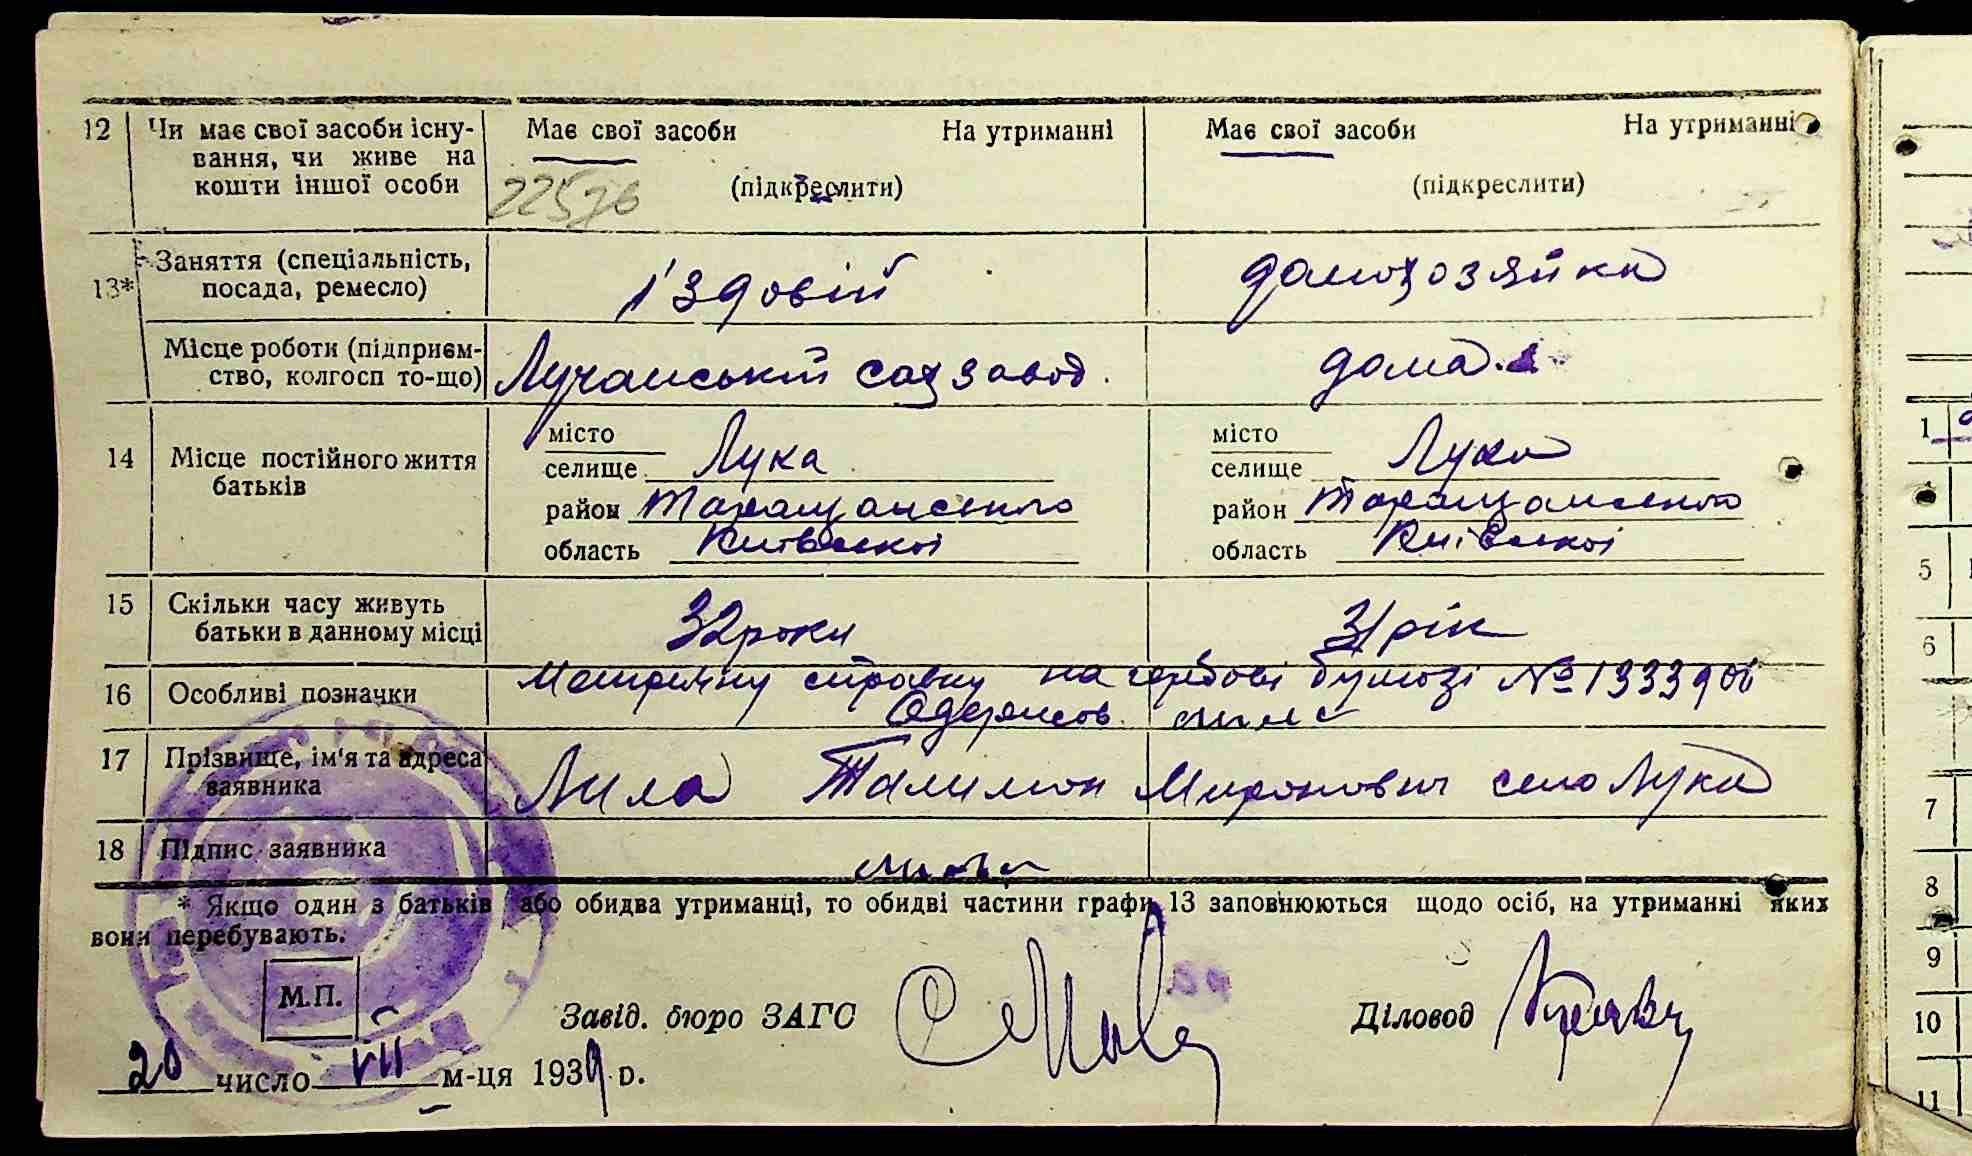 12 Чи має свої засоби існу- Має свої засоби На утриманні Має свої засоби На утриманні
вання, чи живе на
кошти іншої особи (підкреслити) (підкреслити)
13* Заняття (спеціальність, їздовій домохозяйка
посада, ремесло)
Місце роботи (підприєм- Лучанський сахзавод. дома.
ство, колгосп то-що)
14 Місце постійного життя місто місто
батьків селище Лука селище Лука
район Таращанського район Таращанського
область Київської область Київської
15 Скільки часу живуть 32 роки 31 рік
батьки в данному місці
16 Особливі позначки Метричну справку на гербові бумозі №
17 Прізвище, ім'я та адреса Лила Талимон Миронович село Лука
заявника
18 Підпис заявника
* Якщо один з батьків або обидва утриманці, то обидві частини графи 13 заповнюються щодо осіб, на утриманні яких
вони перебувають.
М.П.
Завід. бюро ЗАГС Діловод
20 число VII м-ця 1939 р.
1
5
6
7
8
9
10
11